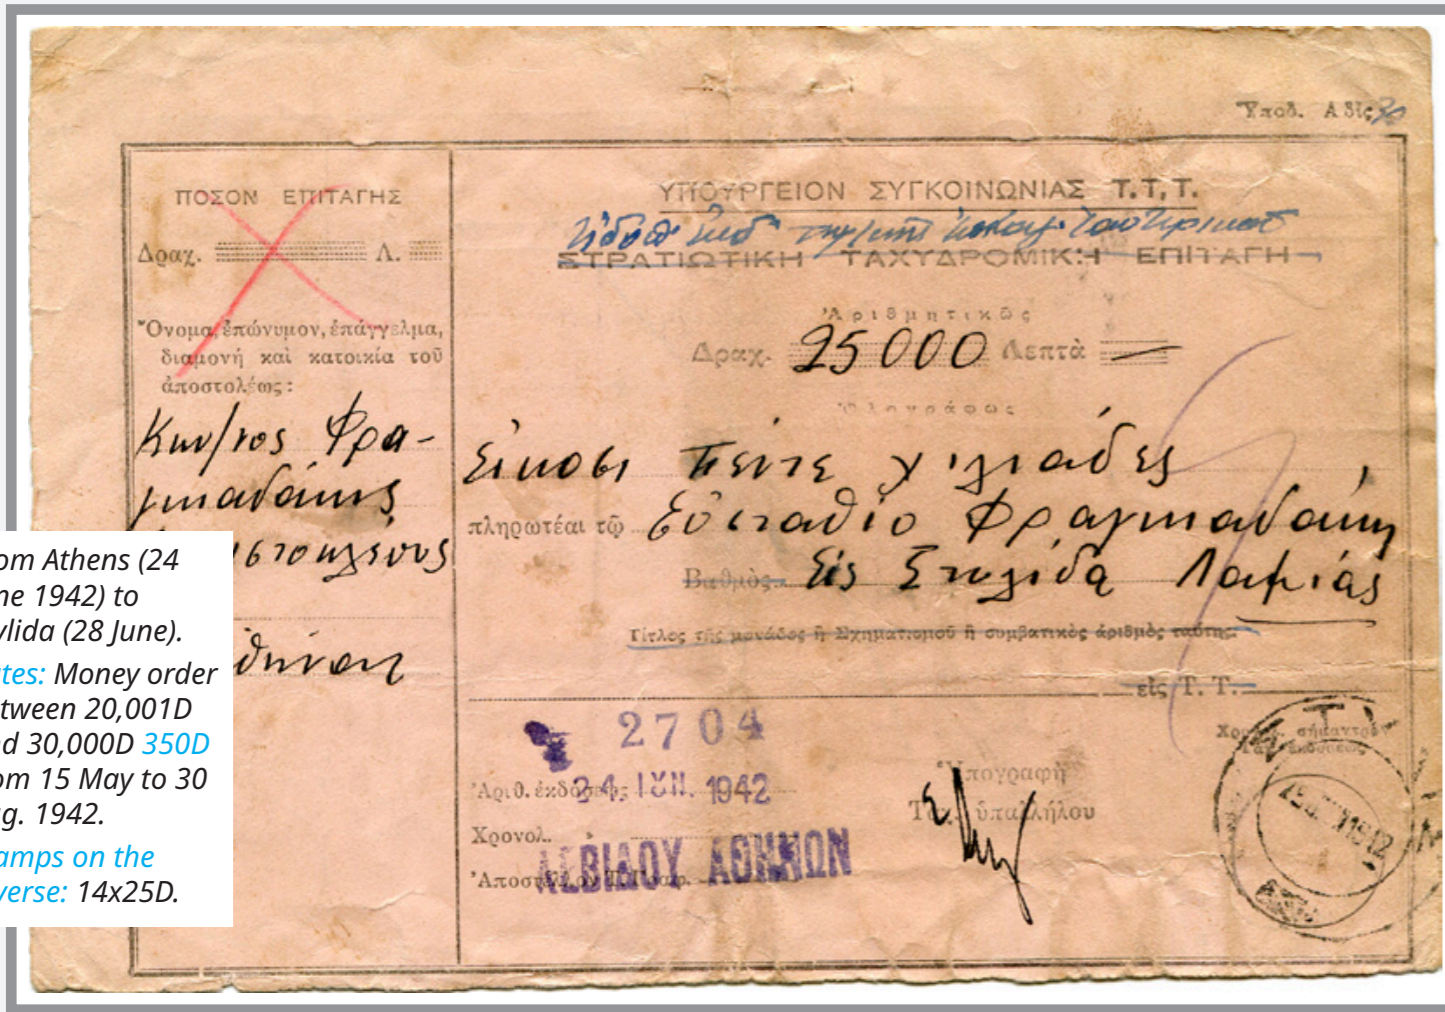 Ὑποδ. Α δὶς 30
ΠΟΣΟΝ ΕΠΙΤΑΓΗΣ
Δραχ. Λ.
Ὄνομα, ἐπώνυμον, ἐπάγγελμα,
διαμονή καὶ κατοικία τοῦ
ἀποστολέως:
Κων/νος Φρα-
γκιαδάκης
ΥΠΟΥΡΓΕΙΟΝ ΣΥΓΚΟΙΝΩΝΙΑΣ Τ.Τ.Τ.
ΣΤΡΑΤΙΩΤΙΚΗ ΤΑΧΥΔΡΟΜΙΚΗ ΕΠΙΤΑΓΗ
Ἀριθμητικῶς
Δραχ. 25000 Λεπτὰ —
Ὁλογράφως
Εἴκοσι πέντε χιλιάδες
πληρωτέαι τῷ Εὐσταθίο Φραγκιαδάκη
Βαθμὸς Εἰς Στυλίδα Λαμίας
Τίτλος τῆς μονάδος ἢ Σχηματισμοῦ ἢ συμβατικὸς ἀριθμὸς ταύτης.
εἰς Τ. Τ.
2704
Ἀριθ. ἐκδόσεως 24. ΙΟΥΝ. 1942
Χρονολ.
Ἀποστέλλον Τ. Γραφ. ΛΕΒΙΔΟΥ ΑΘΗΝΩΝ
Ὑπογραφὴ
Ταχ. ὑπαλλήλου
om Athens (24
ne 1942) to
ylida (28 June).
tes: Money order
tween 20,001D
d 30,000D 350D
om 15 May to 30
g. 1942.
amps on the
verse: 14x25D.